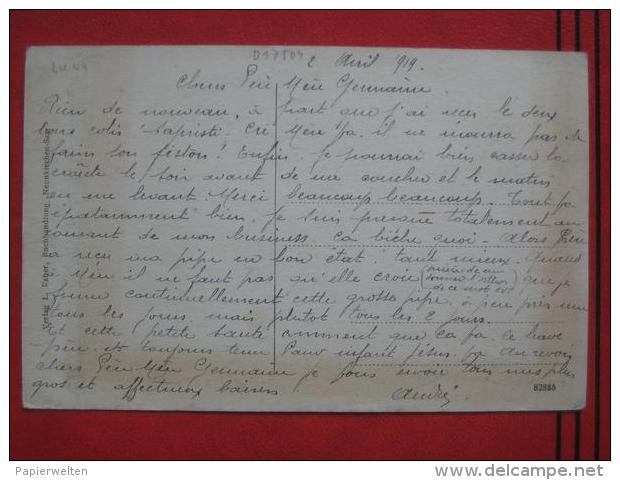 D17504
2 Avril 1919.
Chers Père Mère Germaine.
Rien de nouveau, à part que j'ai reçu le deux
bons colis sapristi. Cré Mère ça, il ne mourra pas de
faim ton fiston! Enfin, je pourrai bien casser la
croûte le soir avant de me coucher et le matin
en me levant. Merci beaucoup beaucoup. Tout ça
épatamment bien, je suis presque totalement au
courant de mon business. ça biche quoi. Alors Père
a reçu ma pipe en bon état. tant mieux. Quand
à Mère il ne faut pas qu'elle croie que je
fume continuellement cette grosse pipe, à peu près une
tous les jours, mais plutôt tous les 2 jours.
et cette petite santé comment que ça va, ce brave
père et toujours tenu l'enfant Jésus. Au revoir
chers Père Mère Germaine je vous envoie tous mes plus
gros et affectueux baisers.
André.
Verlag L. Rupер, Buchhandlung, Neunkirchen-Saar
82886
© Papierwelten
www.delcampe.net